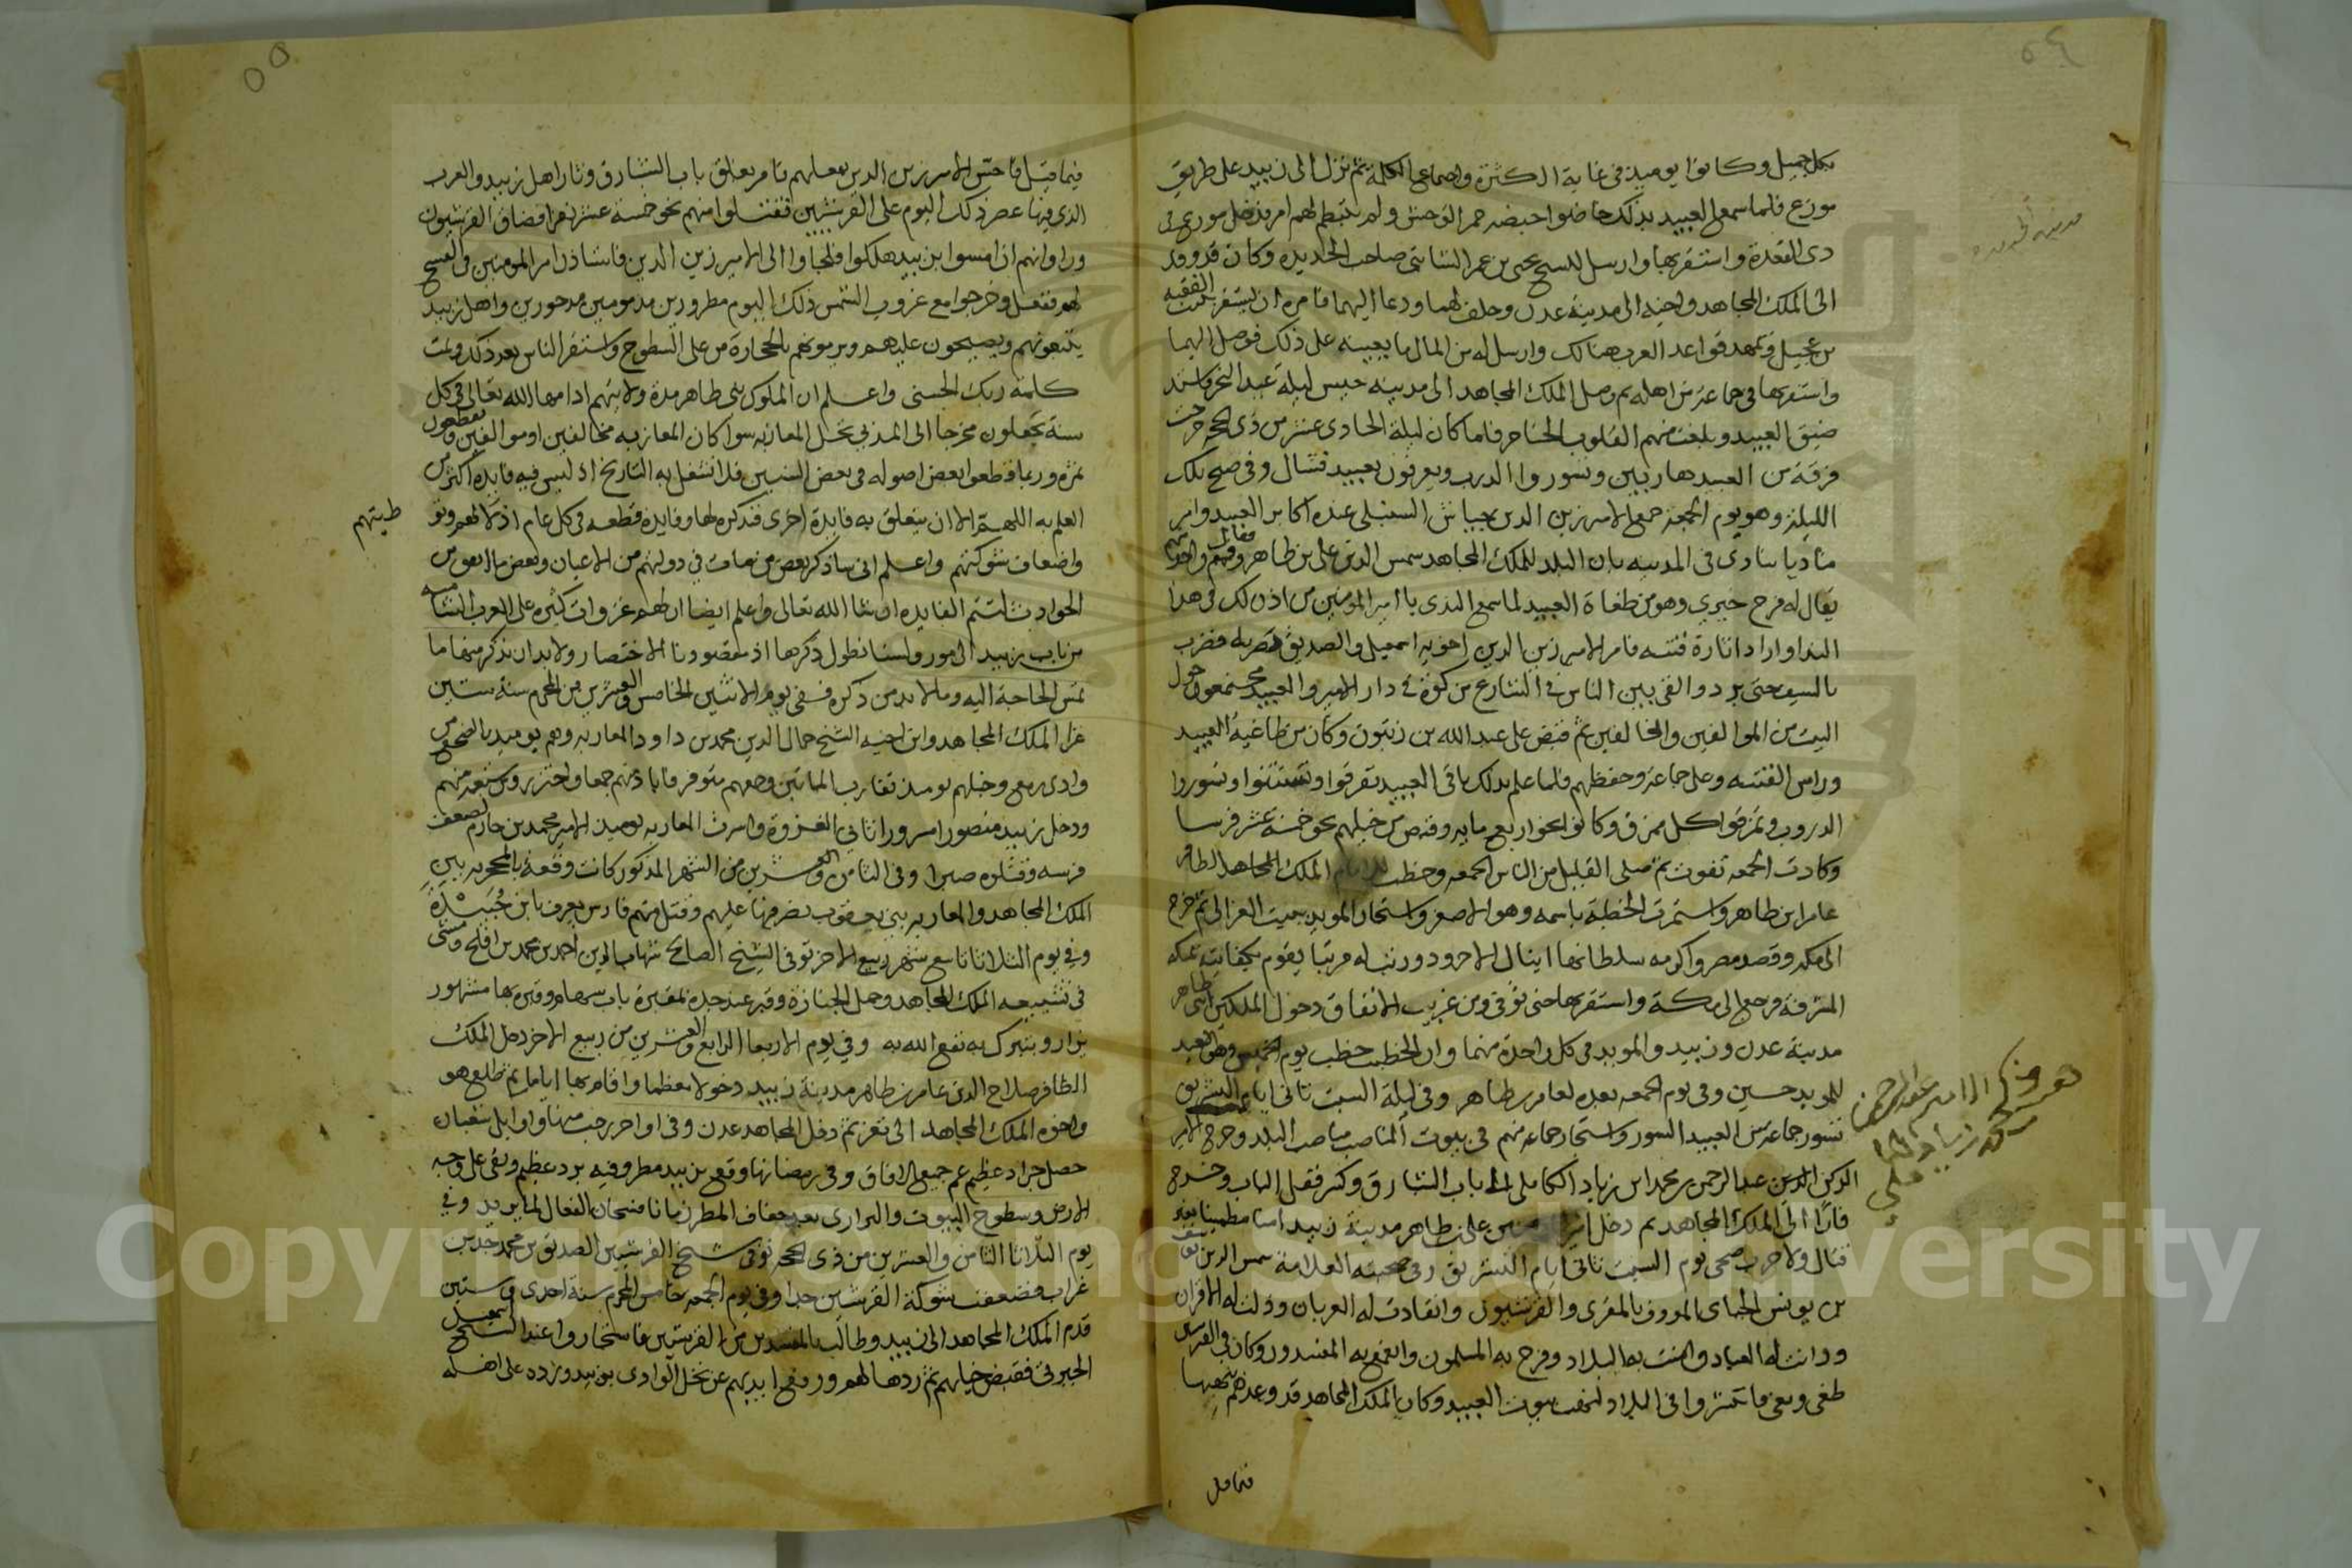 ٥٤
بكل جميل وكانوا يوميذ في غاية الكثرة واجتماع الكلمة ثم نزل الى زبيد على طريق
موزع فلما سمع العبيد بذلك حاصوا حيصه حمر الوحش ولم ينتظم لهم امر فدخل موزع في
ذي القعدة واستقر بها وارسل للشيخ يحيى بن عمر الثابتي صاحب الحديده وكان قد وفد
الى الملك المجاهد واخيه الى مدينة عدن وحلف لهما ودعا اليهما فامره ان يستقر ببيت الفقيه
بن عجيل ويمهد قواعد العرب هنالك وارسل له من المال ما يعينه على ذلك فوصل اليها
واستقر بها في جماعة من اهله ثم وصل الملك المجاهد الى مدينة حيس ليلة عيد النحر فاشتد
ضيق العبيد وبلغت منهم القلوب الحناجر فلما كان ليلة الحادي عشر من ذي الحجه خرجت
فرقة من العبيد هاربين وتسوروا الدرب ويعرفون بعبيد فشال وفي صبح تلك
الليلة وهو يوم الجمعة جمع الامير زين الدين جياش السنبلي عنده اكابر العبيد وامر
مناديا ينادي في المدينه بان البلد للملك المجاهد شمس الدين علي بن طاهر فقال
يقال له فرج خيري وهو من طغاة العبيد لما سمع الندى يا امير المومنين من اذن لك في هذا
الندا واراد اثارة فتنه فامر الامير زين الدين اخويه اسمعيل والصديق بضربه فضرب
بالسيف حتى برد والقي بين الناس في الشارع من كوة في دار الامير والعبيد مجتمعون حول
البيت من الموالفين والمخالفين ثم قبض على عبد الله بن زيتون وكان من طاغية العبيد
وراس الفتنه وعلى جماعة وحفظهم فلما علم بذلك باقي العبيد تفرقوا وتشتتوا وتسوروا
الدروب وتمزقوا كل ممزق وكانوا نحو اربع مايه وقبض من خيلهم نحو خمسة عشر فرسا
وكادت الجمعه تفوت ثم صلى القليل من الناس الجمعه وخطب الملك المجاهد الظافر
عامر ابن طاهر واستمرت الخطبة باسمه وهو الاصغر واستجار المويد ببيت الغزالي ثم خرج
الى مكه وقصد مصر واكرمه سلطانها اينال الاجرود ورتب له مرتبا يقوم بكفايته بمكه
المشرفة ورجع الى مكة واستقر بها حتى توفي ومن غريب الاتفاق دخول الملكين ابني طاهر
مدينة عدن وزبيد والمويد في كل واحدة منهما وان الخطيب خطب يوم الخميس وهو العيد
للمويد حسين وفي يوم الجمعه بعده لعامر بن طاهر وفي ليلة السبت ثاني ايام التشريق
تسور جماعة من العبيد السور واستجار جماعه منهم في بيوت المناصب مناصب البلد وخرج الامير
الركن الدين عبد الرحمن بن محمد ابن زياد الكاملي الى باب الشبارق وكسر قفل الباب وخرج
فارًا الى الملك المجاهد ثم دخل علي بن طاهر مدينة زبيد امنا مطمينا بغير
قتال ولا حرب ضحى يوم السبت ثاني ايام التشريق وفي صحبته العلامة شمس الدين يوسف
بن يونس الجباي المعروف بالمقري والقرشيون وانقادت له العربان وذلت له الاقران
ودانت له العباد وامنت به البلاد وفرح به المسلمون وانقمع به المفسدون وكان في القرشيين
طغى وبغى فانتشروا في البلاد لنهب بيوت العبيد وكان الملك المجاهد قد وعدهم بنهبها
فيما قيل
مدينة الحديده
٥٥
فيما قيل فاحس الامير زين الدين بفعلهم فامر بغلق باب الشبارق وثار اهل زبيد والعرب
الذي فيها عصر ذلك اليوم على القرشيين فقتلوا منهم نحو خمسة عشر نفرا فضاق القرشيون
وراوا انهم ان امسوا بزبيد هلكوا فلجاوا الى الامير زين الدين فاستاذن امير المومنين في الفسح
لهم ففعل وخرجوا مع غروب الشمس ذلك اليوم مطرودين مذمومين مدحورين واهل زبيد
يتبعونهم ويصيحون عليهم ويرمونهم بالحجارة من على السطوح واستقر الناس بعد ذلك وتمت
كلمة ربك الحسنى واعلم ان الملوك بني طاهر مدة ولايتهم ادامها الله تعالى في كل
سنة يجعلون مخرجا الى المدبي نخل المعازبه سوا كان المعازبه مخالفين او موالفين ويقطعون
ثمره وربما قطعوا بعض اصوله في بعض السنين فلا نشغل به التاريخ اذ ليس فيه فايدة اكثر من
العلم به اللهم الا ان يتعلق به فايدة اخرى فنذكره لها وفايدة قطعه في كل عام اذلالهم وتو
طيتهم
واضعاف شوكتهم واعلم اني ساذكر بعض من مات في دولتهم من الاعيان وبعض ما اتفق من
الحوادث لتتم الفايده ان شا الله تعالى واعلم ايضا ان لهم غزوات كثيره على العرب الشاميه
من باب زبيد الى مور ولسنا نطول ذكرها اذ مقصودنا الاختصار ولا بد ان نذكر منها ما
تمس الحاجة اليه وما لا بد من ذكره ففي يوم الاثنين الخامس والعشرين من المحرم سنة ستين
غزا الملك المجاهد وابن اخيه الشيخ جمال الدين محمد بن داود المعازبه وهم يوميذ بالضحي من
وادي رمع وخيلهم يوميذ تقارب الماتين وجمعهم متوفر فاباد منهم جمعا واحتز روس تسعه منهم
ودخل زبيد منصورا مسرورا ثاني الغزوة واسرت المعازبه يوميذ الامير محمد بن حازم لضعف
فرسه وقتلوه صبرا وفي الثامن والعشرين من الشهر المذكور كانت وقعة بالمحريه بين
الملك المجاهد والمعازبه بني يعقوب نصر فيها عليهم وقتل منهم فارس يعرف بابن حُبَيْشَةَ
وفي يوم الثلاثا تاسع شهر ربيع الاخر توفي الشيخ الصالح شهاب الدين احمد بن محمد بن افلح ومشى
في تشييعه الملك المجاهد وحمل الجنازة وقبر عند جده بمقبرة باب سهام وقبره بها مشهور
يزار ويتبرك به نفع الله به وفي يوم الاربعا الرابع والعشرين من ربيع الاخر دخل الملك
الظافر صلاح الدين عامر بن طاهر مدينة زبيد دخولا معظما واقام بها اياما ثم طلع هو
واخوه الملك المجاهد الى تعز ثم دخل المجاهد عدن وفي اواخر رجب منها واوايل شعبان
حصل جراد عظيم عم جميع الافاق وفي رمضانها وقع بزبيد مطر وفيه برد عظيم وبقي على وجه
الارض وسطوح البيوت والبراري بعد جفاف المطر زمانا فسبحان الفعال لما يريد وفي
يوم الثلاثا الثامن والعشرين من ذي الحجه توفي شيخ القرشيين الصديق بن محمد
غراب فضعفت شوكة القرشيين جدا وفي يوم الجمعه خامس المحرم سنة احدى وستين
قدم الملك المجاهد الى زبيد وطالب بالمفسدين من القرشيين فاستجاروا عند الشيخ اسمعيل
الجبرتي فقبض خيلهم ثم ردها لهم ورفع ايديهم عن نخل الوادي بزبيد ورده على اهله
Copyright © King Saud University